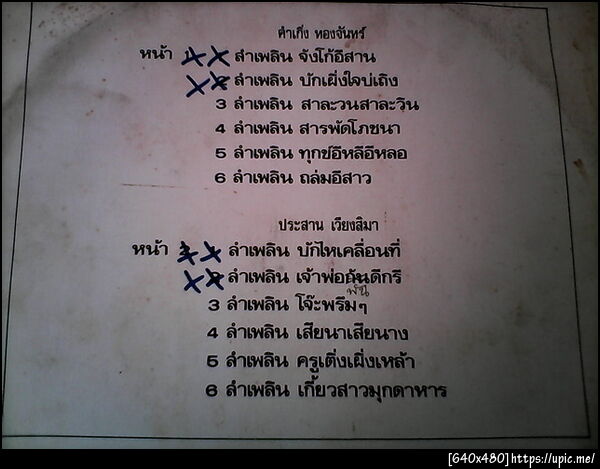 คำเกิ่ง ทองจันทร์
หน้า 1 ลำเพลิน จังโก้อีสาน
2 ลำเพลิน บักเผิ่งใจบ่เถิง
3 ลำเพลิน สาละวนสาละวิน
4 ลำเพลิน สารพัดโภชนา
5 ลำเพลิน ทุกข์อีหลีอีหลอ
6 ลำเพลิน ถล่มอีสาว
ประสาน เวียงสิมา
หน้า 1 ลำเพลิน บักไหเคลื่อนที่
2 ลำเพลิน เจ้าพ่อกันดีกรี
พัน
3 ลำเพลิน โจ๊ะพรึมๆ
4 ลำเพลิน เสียนาเสียนาง
5 ลำเพลิน ครูเติ่งเผิ่งเหล้า
6 ลำเพลิน เกี้ยวสาวมุกดาหาร
[640x480]https://upic.me/